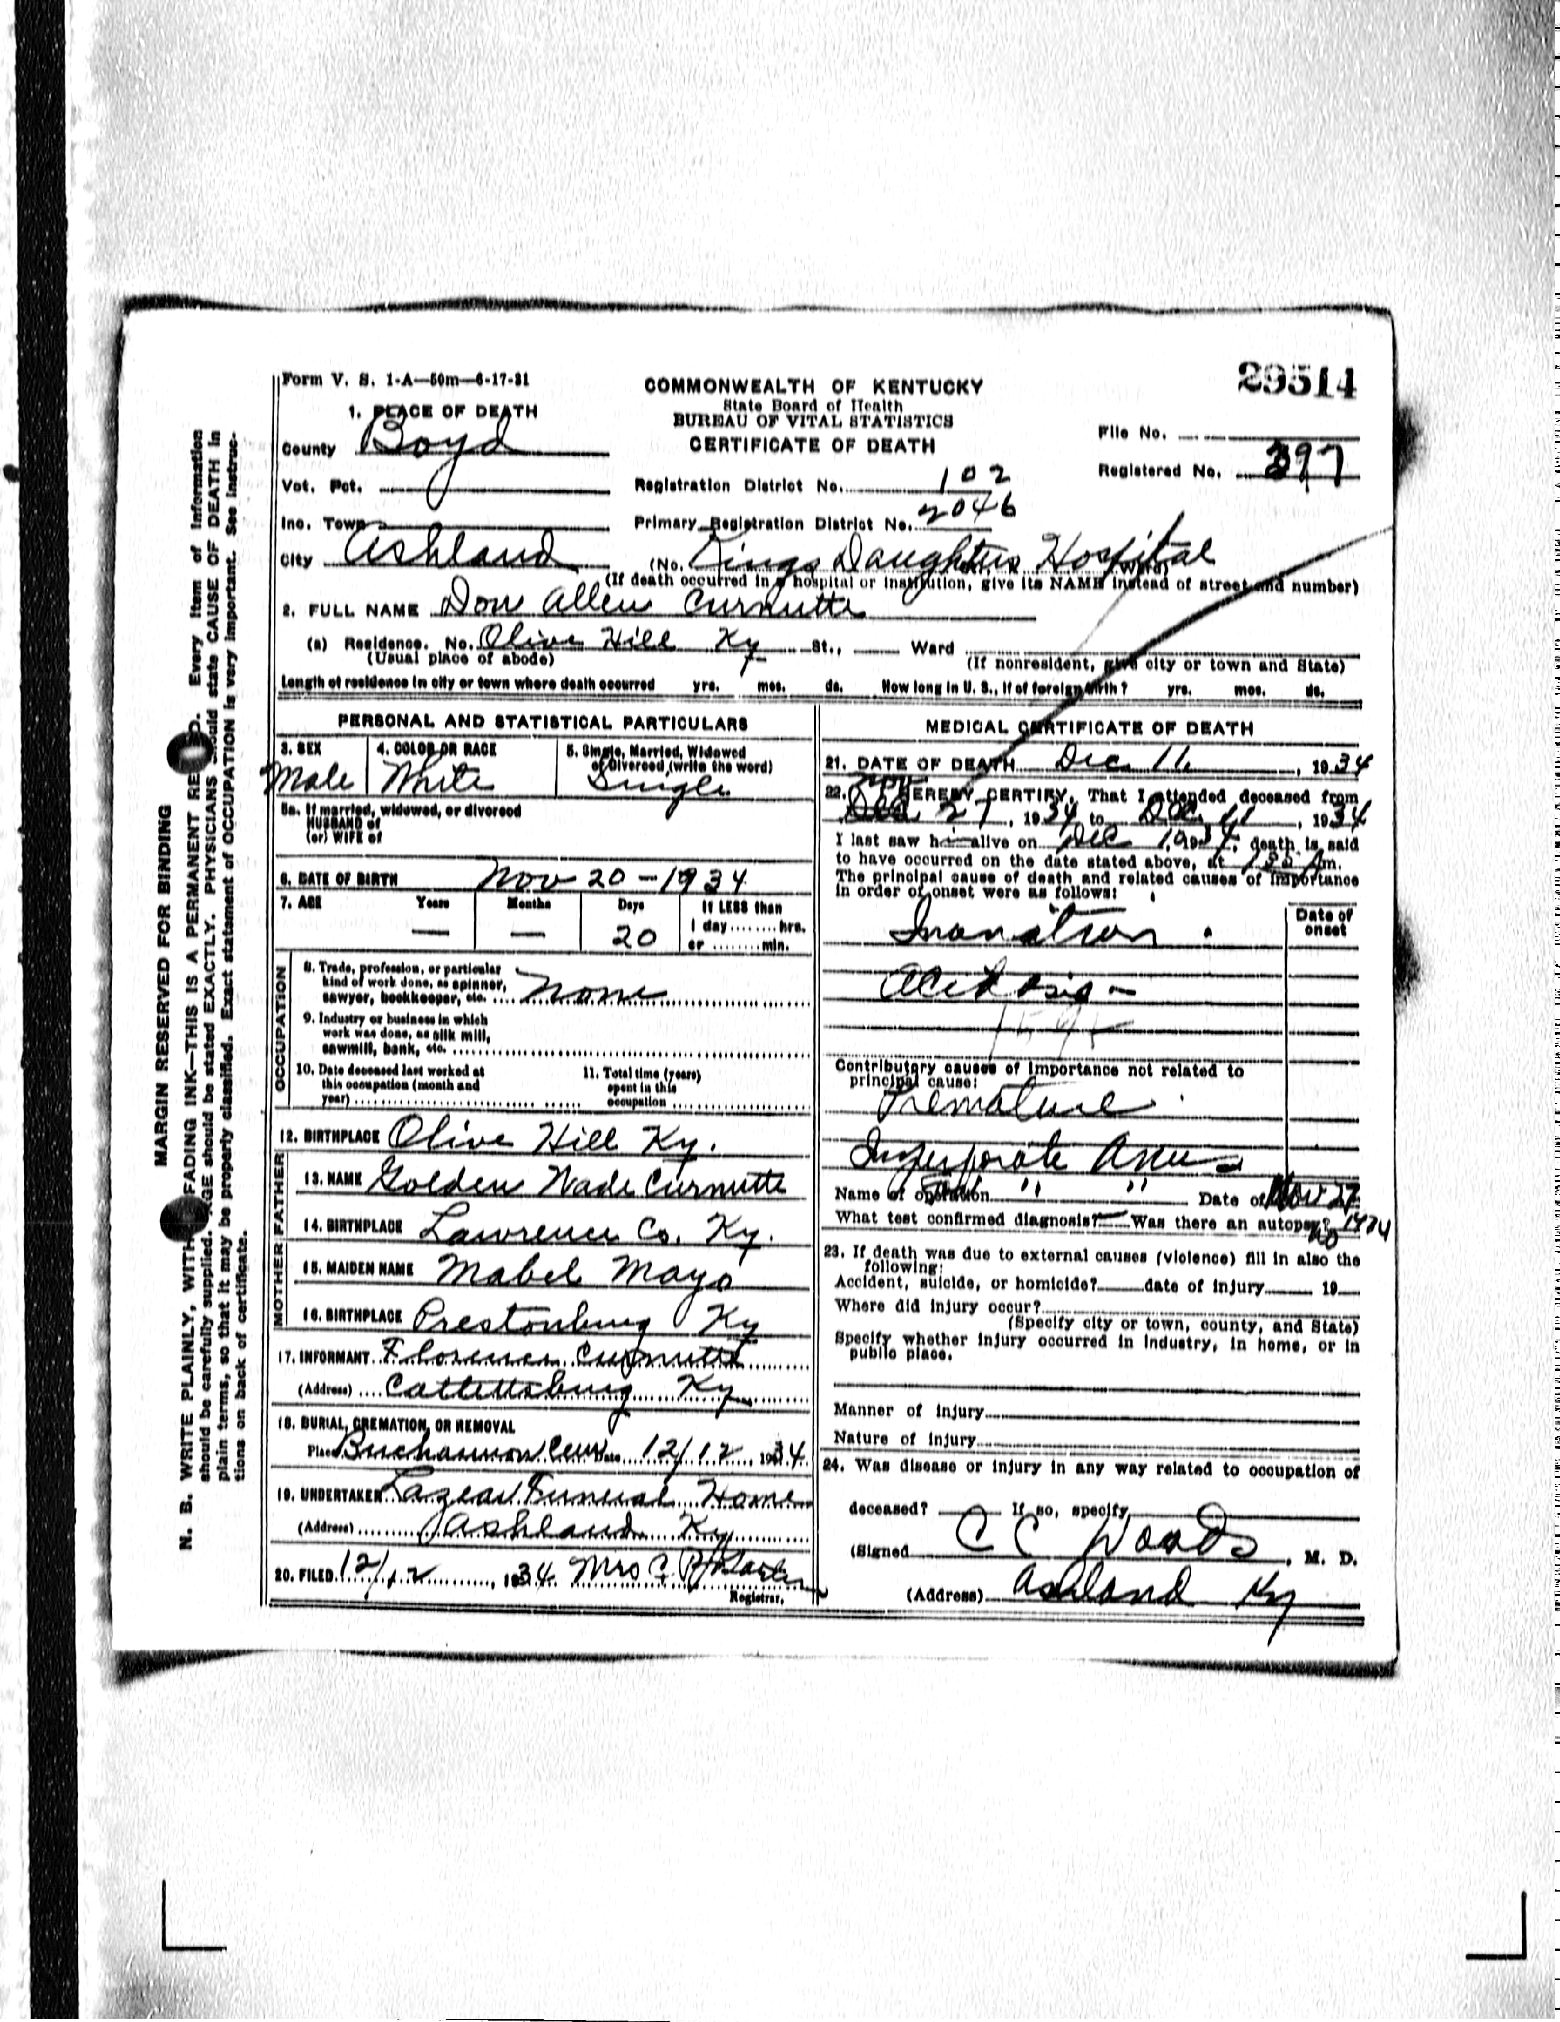 Form V. S. 1-A—50m—6-17-31
29514
COMMONWEALTH OF KENTUCKY
State Board of Health
BUREAU OF VITAL STATISTICS
CERTIFICATE OF DEATH
1. PLACE OF DEATH
County Boyd
Vot. Pct.
Inc. Town
City Ashland
File No.
Registered No. 397
Registration District No. 102
Primary Registration District No. 2046
(No. Kings Daughters Hospital
(If death occurred in a hospital or institution, give its NAME instead of street and number)
2. FULL NAME Don Allen Curnutte
(a) Residence. No. Olive Hill Ky St., Ward
(Usual place of abode)
(If nonresident, give city or town and State)
Length of residence in city or town where death occurred yrs. mos. ds. How long in U. S., if of foreign birth? yrs. mos. ds.
PERSONAL AND STATISTICAL PARTICULARS
3. SEX
Male
4. COLOR OR RACE
White
5. Single, Married, Widowed
or Divorced (write the word)
Single
5a. If married, widowed, or divorced
HUSBAND of
(or) WIFE of
6. DATE OF BIRTH Nov 20 - 1934
7. AGE Years Months Days If LESS than
— — 20 1 day ........ hrs.
or ........ min.
OCCUPATION
8. Trade, profession, or particular
kind of work done, as spinner,
sawyer, bookkeeper, etc. None
9. Industry or business in which
work was done, as silk mill,
sawmill, bank, etc.
10. Date deceased last worked at
this occupation (month and
year)
11. Total time (years)
spent in this
occupation
12. BIRTHPLACE Olive Hill Ky.
FATHER
13. NAME Golden Wade Curnutte
14. BIRTHPLACE Lawrence Co. Ky.
MOTHER
15. MAIDEN NAME Mabel Mayo
16. BIRTHPLACE Prestonburg Ky
17. INFORMANT Florence Curnutte
(Address) Cattettsburg Ky
18. BURIAL, CREMATION, OR REMOVAL
Place Buchannon Cem Date 12/12, 1934
19. UNDERTAKER Lazear Funeral Home
(Address) Ashland Ky
20. FILED 12/12, 1934 Mrs C.
Registrar.
MEDICAL CERTIFICATE OF DEATH
21. DATE OF DEATH Dec 11, 1934
Nov
22. I HEREBY CERTIFY, That I attended deceased from
Dec 27, 1934 to Dec 11, 1934
I last saw h alive on Dec 1934, death is said
to have occurred on the date stated above, at m.
The principal cause of death and related causes of importance
in order of onset were as follows:
Date of
onset
Inanition
Acidosis
Contributory causes of importance not related to
principal cause:
Premature
Imperforate Anus
Name of operation " " Date of Nov 27
What test confirmed diagnosis? — Was there an autopsy? no 1934
23. If death was due to external causes (violence) fill in also the
following:
Accident, suicide, or homicide? date of injury 19
Where did injury occur?
(Specify city or town, county, and State)
Specify whether injury occurred in industry, in home, or in
public place.
Manner of injury
Nature of injury
24. Was disease or injury in any way related to occupation of
deceased? If so, specify
(Signed C C Woods, M. D.
(Address) Ashland Ky
MARGIN RESERVED FOR BINDING
N. B. WRITE PLAINLY, WITH FADING INK—THIS IS A PERMANENT RE D. Every item of information
should be carefully supplied. AGE should be stated EXACTLY. PHYSICIANS should state CAUSE OF DEATH in
plain terms, so that it may be properly classified. Exact statement of OCCUPATION is very important. See instruc-
tions on back of certificate.